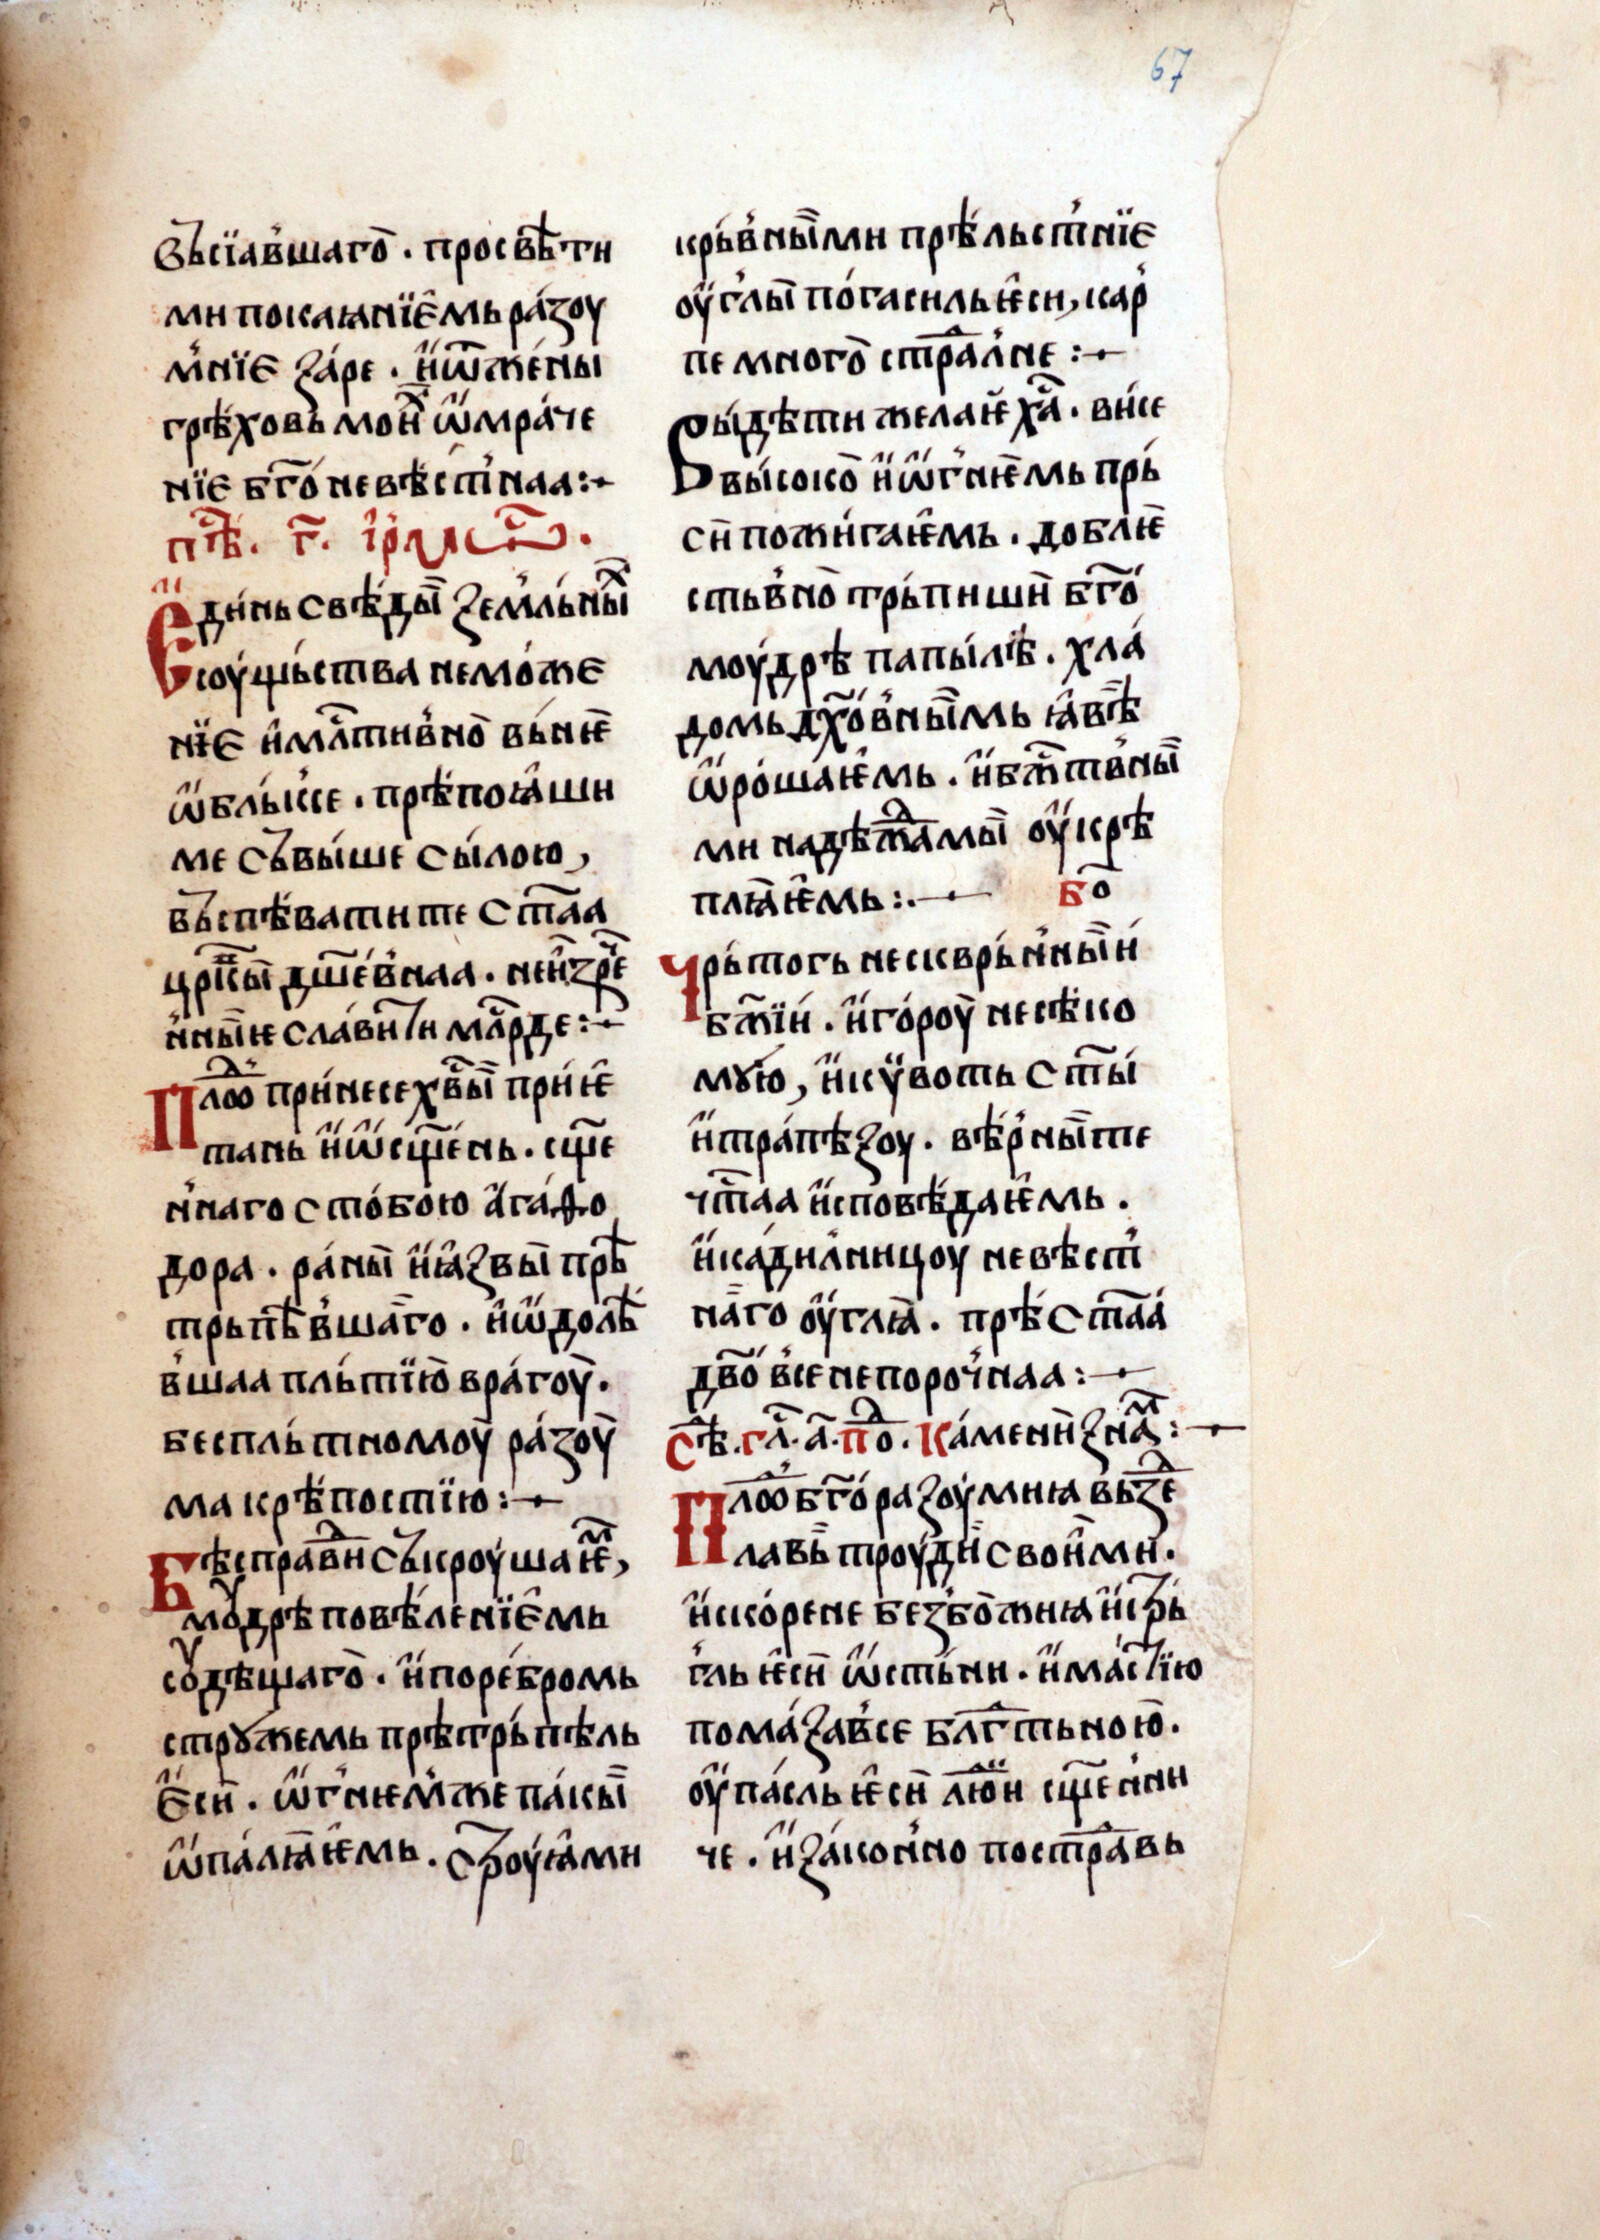 67
въсїав́шаго̄ . просвѣти
ми покаꙗнїе̂мь ра́зоу
м́нїе ꙁа́ре . и҆ѿжены̀
грѣ́ховь мои̯ⷯ ѡ҆мра́че
нїе бг҃о́невѣст́наа :~
пѣⷭ҇. г҃. і҆рмо́сь .
Е҆ди́нь свѣ́ды̄ ꙁемльны́ⷯ
соу́щьства немо́же
нїе и҆млⷭ҇тив́но̄ вь́нѥ
ѡ҆бль́ксе . прѣ́поꙗ̂ши
ме съвы́ше сы́лою ,
въспѣ́вати те ст҃аа
црк҃ы дш҃е́в́наа . неи̯ꙁре́ⷱ
н́ны̄ѥ сла́вити млⷭ҇рде :~
Плоⷣ при́несе хв҃ы̄ при́ѥ
тань и҆ѡ҆сщ҃е́нь . сщ҃е
н́наго сто́бою а҆га́ѳо
дора . ра́ны̄ и҆ꙗ҆ꙁвы̄ прѣ́
трьпѣ́в́ша̄го . и҆ѡ҆долѣ́
в́шаа пль́тїю̄ вра́гоӯ .
бесплътномоӯ ра́ꙁоӯ
ма крѣ́постїю :~
Бѣсправⷣи съкроу́шаѥⷨ ,
моу́дрѣ повѣ́ленїе̂мь
соу́дѣщаго̄ . и҆поре́бромь
стрꙋжемь прѣ́трь́пѣль
е҆сӣ . ѡ҆ѓнѥм́же па́кы̄
ѡ҆па́лꙗ̄ѥмь . строу́ꙗми
крь́в́ны̄ми прѣ́льст́нїе
оу҆ѓлы̄ по́гасиль ѥ҆си , кар́
пе много̄ страⷣл́не :~
Вы́дѣти желае̯ хаⷭ҇ . висе
высоко̄ и҆ѡ҆ѓнѥмь прь́
сӣ пожи́гаѥ҆мь . доблѥ̄
ствь́но̄ трь́пишӣ бг҃о́
моу́дрѣ папы́лѣ . хла́
домь дх҃о́в́ны̄мь ꙗ҆вѣ̄
ѡ҆ро́шаѥмь . и҆бжⷭ҇тв́ны̄
ми надѣжⷣамы̄ оу҆крѣ
плꙗѥ҆мь :.~ бо҃
Чрьтогь нескврь́н́ны̄ и́
бж҃їи́ . и҆го́роӯ несѣ́ко
мꙋ́ю , и҆кѵ̈воть ст҃ы́
и҆тра́пѣꙁоу . вѣ́р́ны̄ те
чⷭ҇таа и҆сповѣ́даѥ҆мь .
и҆ка́дилницоу̀ невѣст́
на̄го оу҆глꙗ̄ . прѣ́ст҃аа́
дв҃о́ в́се непороч́наа :~
Сѣⷣ. глⷭ҇. а҃. поⷣ. Ка́менӣ ꙁнаⷨ :~
Плоⷣ бг҃о́раꙁоумиꙗ вьꙁⷣе
лавь̄ троу́дӣ свои҆ми .
и҆скорене беꙁбо̄жниꙗ и҆стрь́
ѓль ѥ҆сӣ ѡ҆стьни . и҆ма́стїю
пома́ꙁав́се блгⷣтьною̄ .
оу҆па́сль ѥ҆сӣ люⷣи сщ҃ен́ни
че . и҆ꙁа́кон́но пострⷣавь